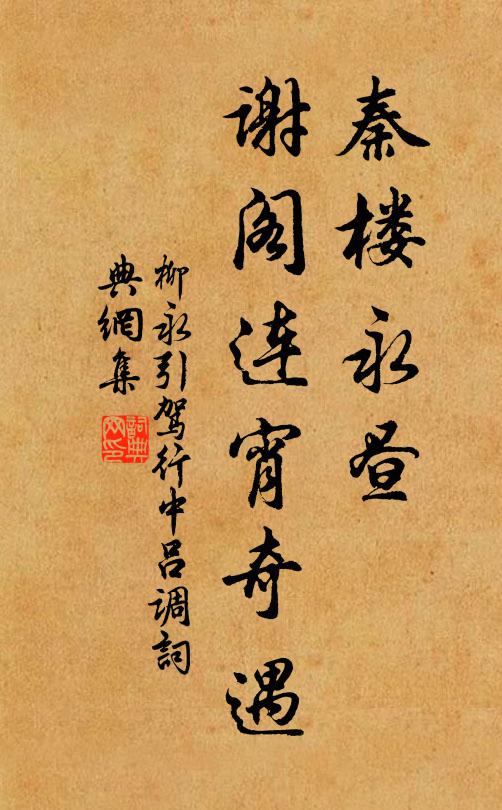 秦楼永昼
谢阁连宵奇遇
柳永引驾行中吕调词
典網集
詞典
网印